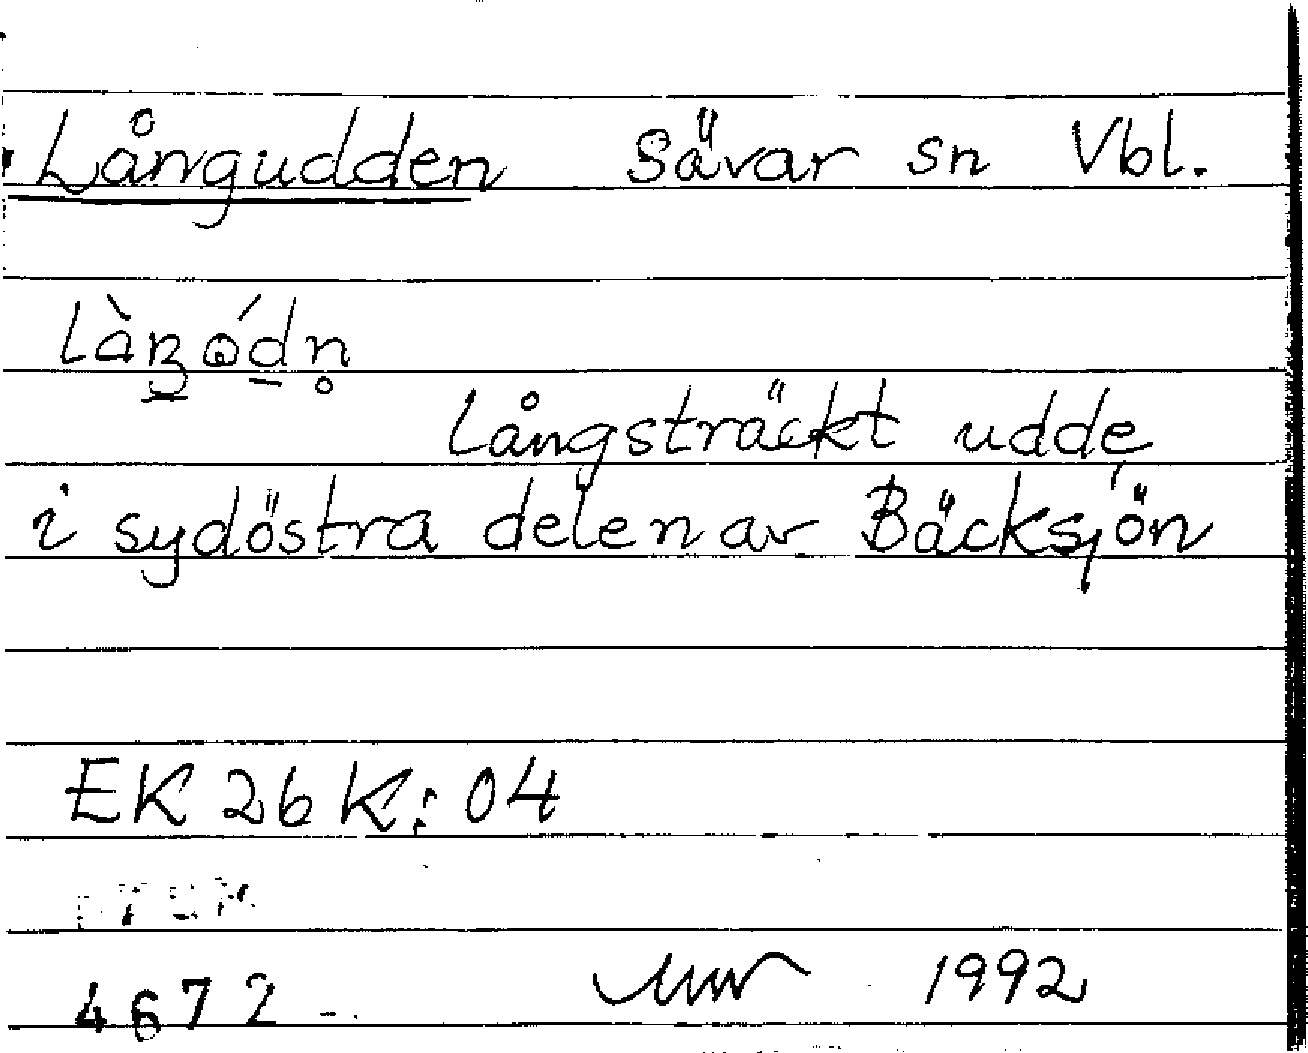 Långudden Sävar sn Vbl.
Långsträckt udde
i sydöstra delen av Bäcksjön
EK 26 K: 04
4672 1992